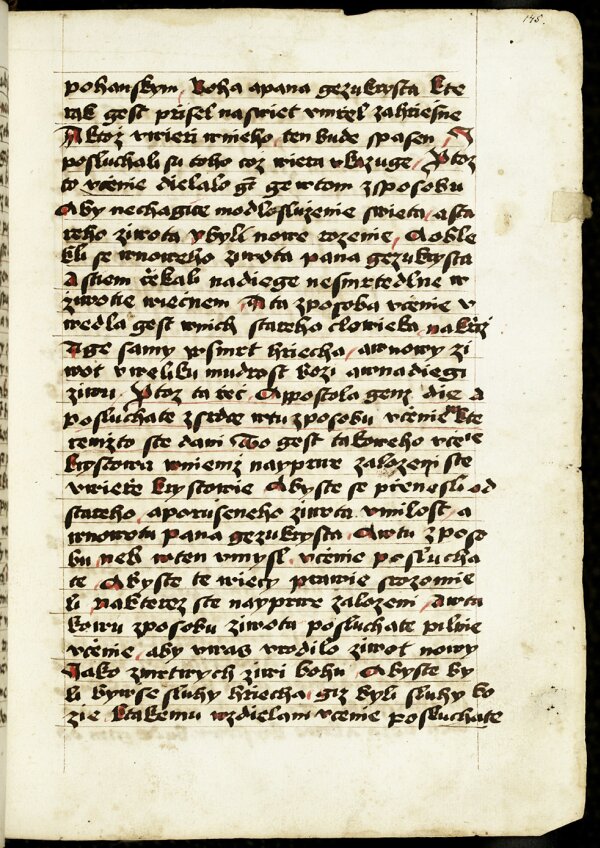 145.
pohanskym, Boha a pana gezukrysta kte
rak gest přisel naswiet vmrel zahriesne
A ktoz vwieri wnieho, ten bude spasen, A
posluchali su toho coz wiera vkazuge, Protoz
to včenie dielalo gt ge wtom zsposobu
Aby nechagice modlosluzenie swieta, a sta
reho ziwota, ybyli nowe rozenie, A oble
kli se wnoweho ziwota pana gezukrysta
A stiem čekali nadiege nesmrtedlne w
ziwotie wiecnem, A ta zposoba včenie v
wedla gest wnich stareho clowieka, nakřiz
A ge samy wsmrt hriecha, awnowy zi
wot vweliku mudrost bozi awnadiegi
ziwu, Protoz ta reč, Appostola genz die, A
posluchate zsrdce wtu zposobu včenie kte
remizto ste dani To gest takoweho včenie
krystowu wniemz nayprwe zalozeni ste
vwieře krystowie Abyste se přenesli od
stareho, aporuseneho ziwota vmilost, a
wnowotu pana gezukrysta, A wtu zposo
bu neb wten vmysl, včenie poslucha
te, Abyste te wiecy prawie srozomie
li nakterez ste nayprwe zalozeni, A wta
kowu zposobu ziwota posluchate pilnie
včenie, aby wwas vrodilo ziwot nowy
Jako zmrtwych ziwi bohu, Abyste by
li bywse sluhy hriecha, giz byli sluhy bo
zie, ktakemu wzdielani včenie posluchate